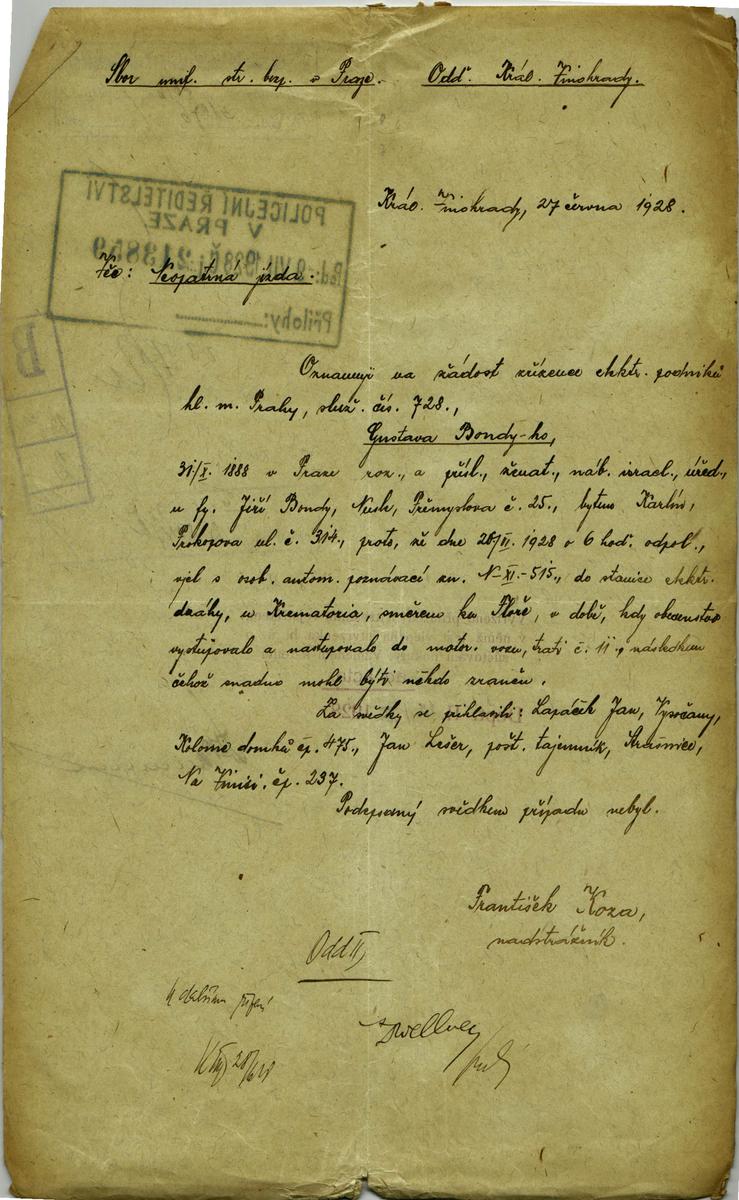 Sbor unif. str. bezp. v Praze. Odd. Král. Vinohrady.
Král. Vinohrady, 27 června 1928.
POLICEJNÍ ŘEDITELSTVÍ
V PRAZE
213859
Přílohy:
Věc: Neopatrná jízda.
B
Oznamuji na žádost zřízence elektr. podniků
hl. m. Prahy, služ. čís. 728.,
Gustava Bondy-ho,
31/X. 1888 v Praze roz., a přísl., ženat., náb. israel., úřed.,
u fy. Jiří Bondy, Nusle, Přemyslova č. 25., bytem Karlín,
Prokopova ul. č. 314., proto, že dne 26/VI. 1928 o 6 hod. odpol.,
vjel s osob. autom. poznávací zn. N-XI.-515., do stanice elektr.
dráhy, u Krematoria, směrem ku Floře, v době, kdy obecenstvo
vystupovalo a nastupovalo do motor. vozu, trati č. 11, následkem
čehož snadno mohl býti někdo zraněn.
Za svědky se přihlásili: Lapáček Jan, Vysočany,
Kolonie domků čp. 475., Jan Lešer, pošt. tajemník, Strašnice,
Na Vinici. čp. 237.
Podepsaný svědkem případu nebyl.
František Koza,
nadstrážník.
Odd II,
K dalšímu řízení